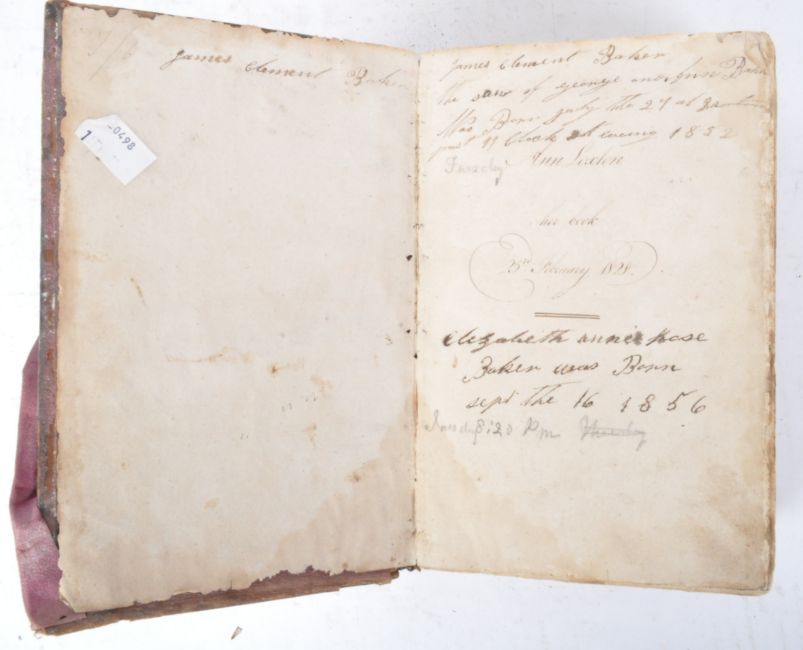 James Clement Baker
-0498
1
James Clement Baker
the son of george and Ann Baker
Was Born July the 27 at
past 11 Clock at evening 1852
Ann
Tuesday
her book
25th February 1828.
Elizabeth annie Rose
Baker was Born
sept the 16 1856
Tuesday 8:20 Pm